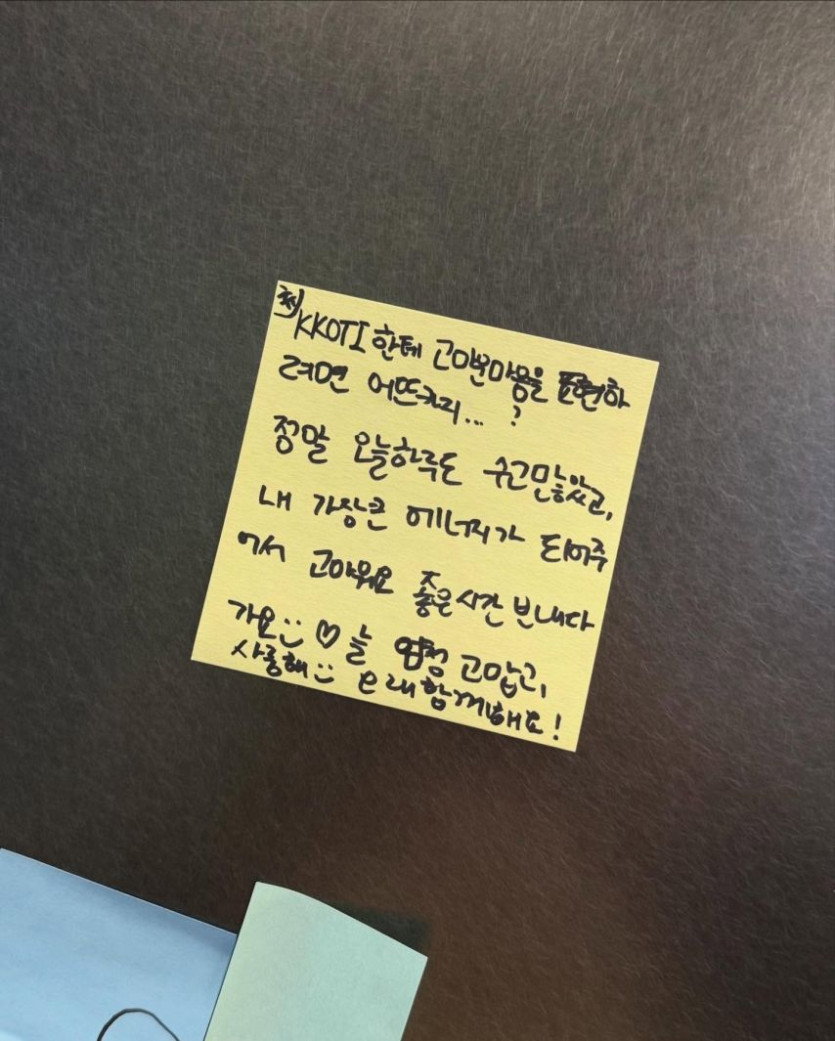 KKOTI한테 고마운마음을 표현하
려면 어뜨카지...?
정말 오늘하루도 수고많았고,
내 가장큰 에너지가 되어주
어서 고마워요 좋은시간 보내다
가요 ♡ 늘 엄청 고맙고,
사룽해 오래함께해요!